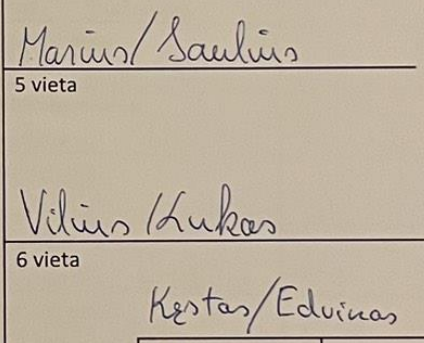 Marius/Saulius
5 vieta
Vilius/Lukas
6 vieta
Kęstas/Edvinas